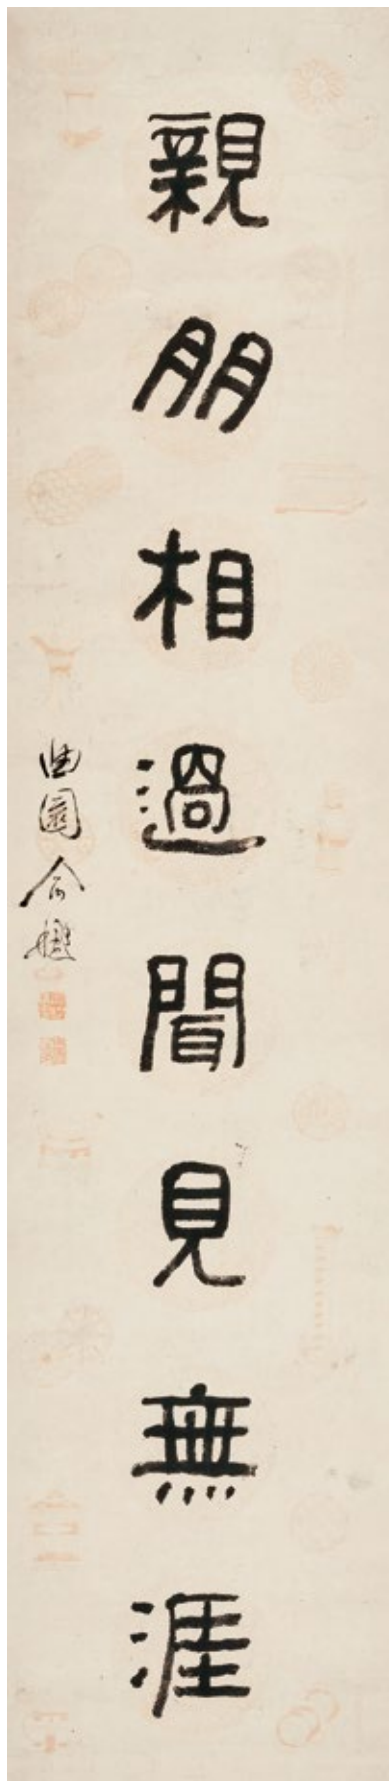 親朋相過聞見無涯
曲園俞樾